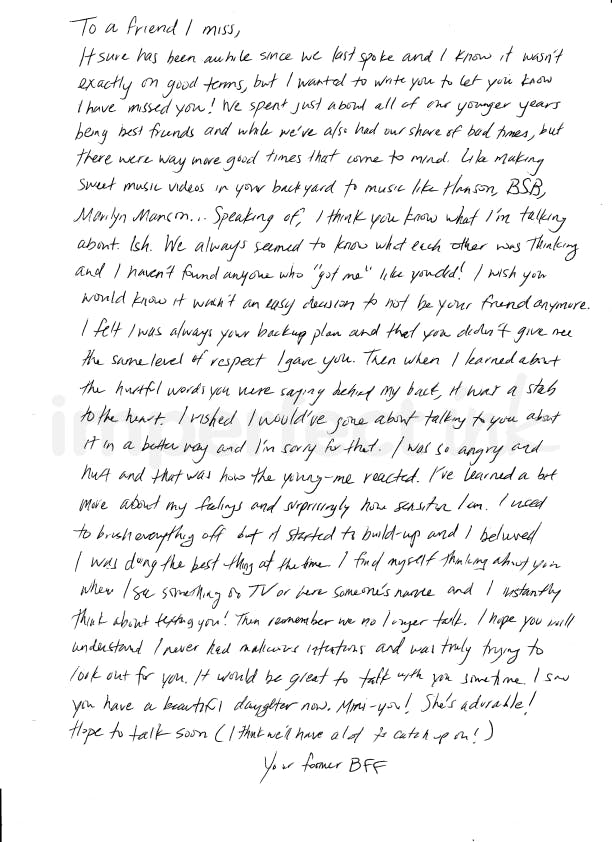 To a friend I miss,
It sure has been awhile since we last spoke and I know it wasn't
exactly on good terms, but I wanted to write you to let you know
I have missed you! We spent just about all of our younger years
being best friends and while we've also had our share of bad times, but
there were way more good times that come to mind. Like making
sweet music videos in your backyard to music like Hanson, BSB,
Marilyn Manson... Speaking of, I think you know what I'm talking
about. Ish. We always seemed to know what each other was thinking
and I haven't found anyone who "got me" like you did! I wish you
would know it wasn't an easy decision to not be your friend anymore.
I felt I was always your backup plan and that you didn't give me
the same level of respect I gave you. Then when I learned about
the hurtful words you were saying behind my back, it was a stab
to the heart. I wished I would've gone about talking to you about
it in a better way and I'm sorry for that. I was so angry and
hurt and that was how the young-me reacted. I've learned a bit
more about my feelings and surprisingly how sensitive I am. I used
to brush everything off but it started to build-up and I believed
I was doing the best thing at the time. I find myself thinking about you
when I see something on TV or here someone's name and I instantly
think about texting you! Then remember we no longer talk. I hope you will
understand I never had malicious intentions and was truly trying to
look out for you. It would be great to talk with you sometime. I saw
you have a beautiful daughter now. Mini-you! She's adorable!
Hope to talk soon (I think we'll have a lot to catch up on!)
Your former BFF